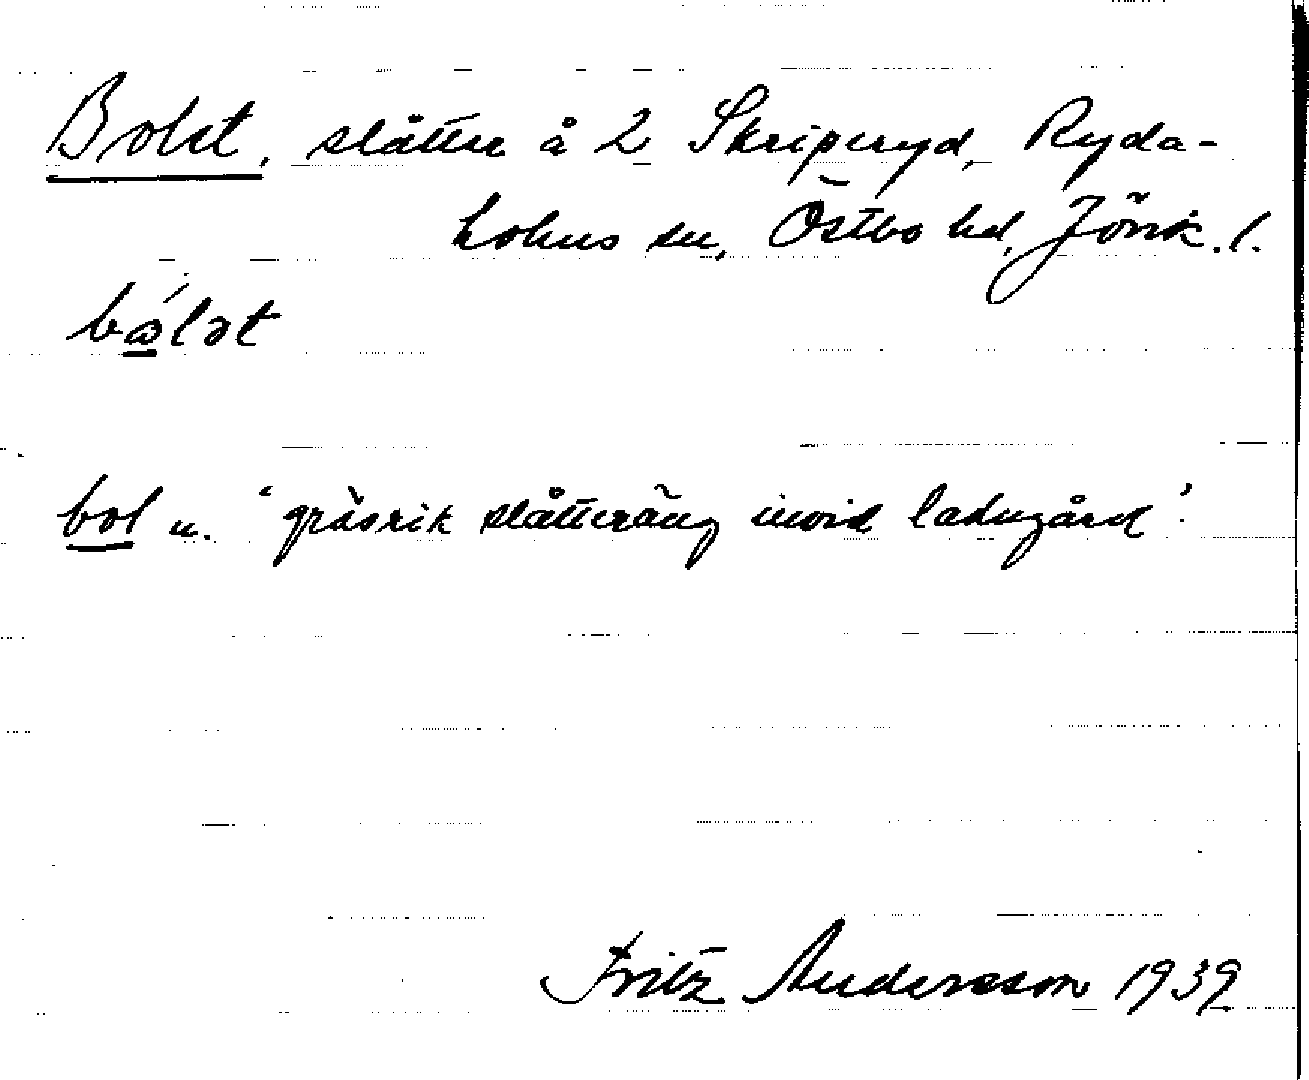 Bolet, slåtter å 2 Skriperyd, Ryda-
holms sn, Östbo hd, Jönk. l.
bólət
bol n. 'gräsrik slåtteräng invid ladugård'.
Fritz Andersson 1939